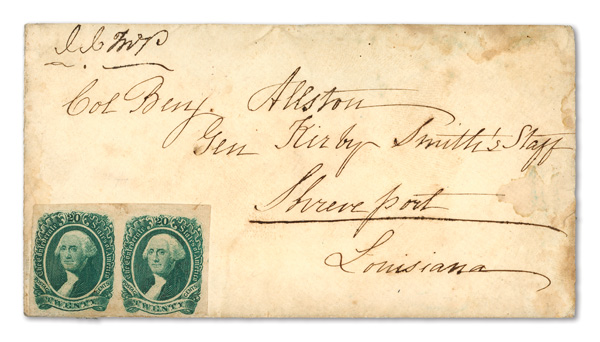 Col Benj. Allston
Gen Kirby Smith's Staff
Shreveport
Louisiana
20 20
TWENTY TWENTY